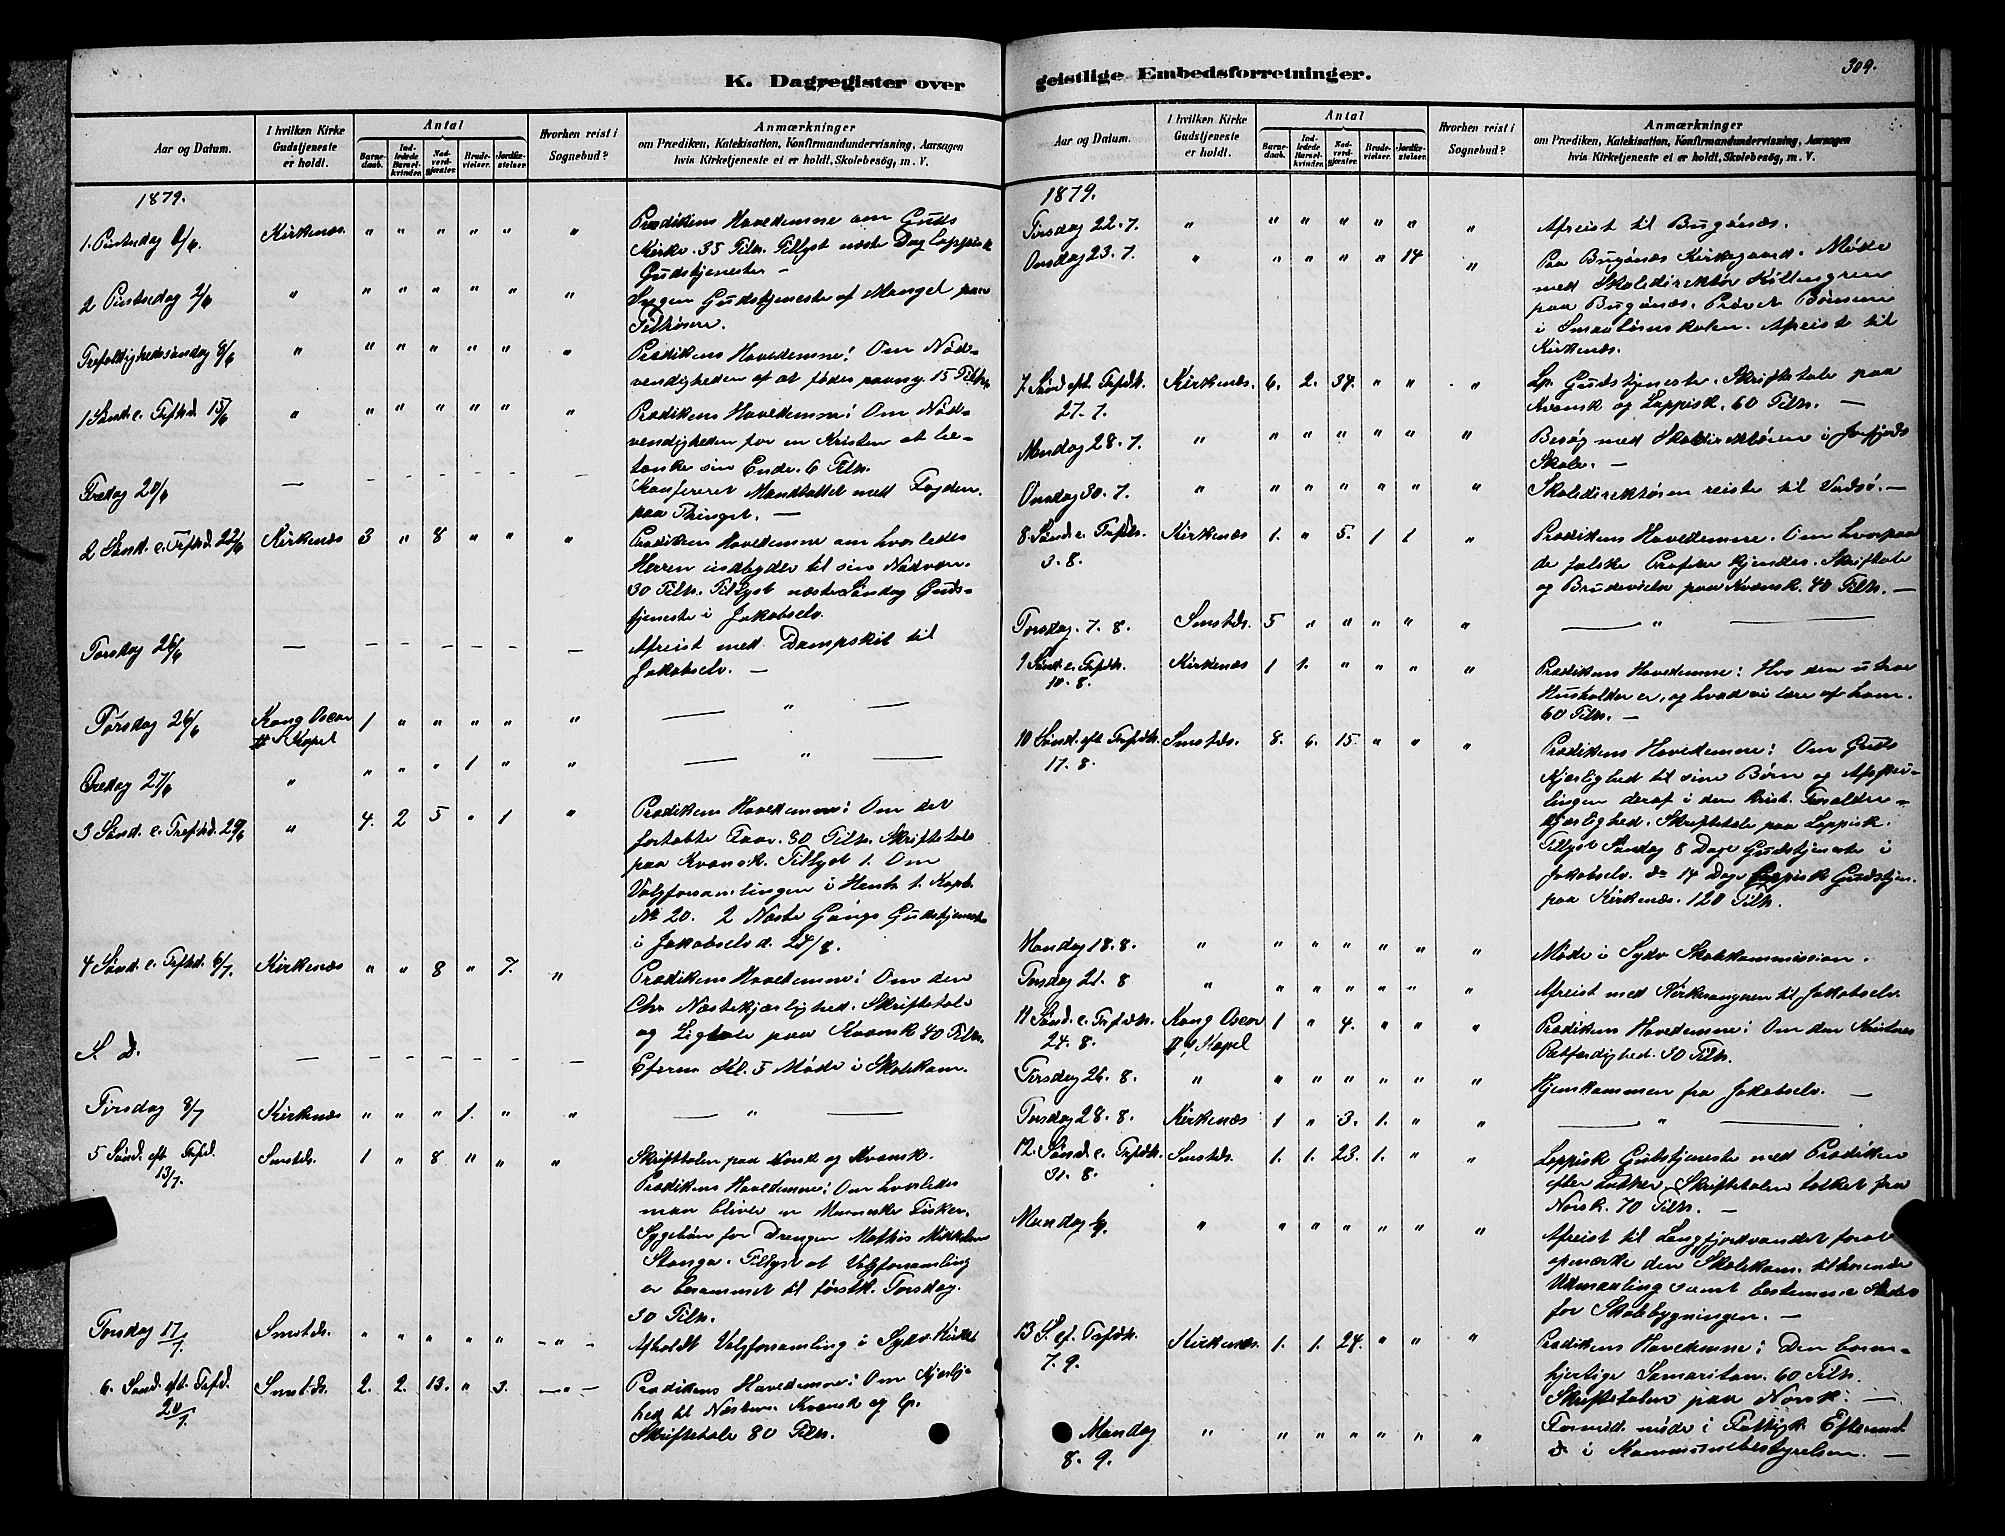 K. Dagregister over
Aar og Datum.
I hvilken Kirke
Gudstjeneste
er holdt.
Antal
Barne-
daab.
Ind-
ledede
Barsel-
kvinder.
Nad-
verd-
gjæster.
Brude-
vielser.
Jordfæ-
stelser.
Hvorhen reist i
Sognebud?
Anmærkninger
om Prædiken, Katekisation, Konfirmandundervisning, Aarsagen
hvis Kirketjeneste ei er holdt, Skolebesøg, m. V.
1879.
1. Pintsedag 1/6. Kirkenæs. " " " " " " Prædikens Hovedemne om Guds
Kirke. 35 Tilh. Tillyst næste Dag Lappisk
Gudstjeneste —
2 Pintsedag 2/6 " " " " " " " Ingen Gudstjeneste af Mangel paa
Tilhørere.
Trefoldighedssøndag 8/6 " " " " " " " Prædikens Hovedemne: Om Nød-
vendigheden af at fødes paany. 15 Tilh.
1 Sønd. e. Trefhd 15/6 " " " " " " " Prædikens Hovedemne: Om Nød-
vendigheden for en Kristen at be-
tænke sin Ende. 6 Tilh.
Fredag 20/6 — - - - - - Konfereret Mandtallet med Fogden
paa Thinget. —
2 Sønd. e. Trefhd. 22/6 Kirkenæs 3 " 8 " " " Prædikens Hovedemne om hvorledes
Herren indbyder til sin Nadver.
30 Tilh. Tillyst næste Søndag Guds-
tjeneste i Jakobselv.
Torsdag 26/6 — - - - - - — Afreist med Dampskib til
Jakobselv. —
Torsdag 26/6 Kong Oscar 1 " " " " " — " —
II s Kapel
Fredag 27/6 " " " " 1 " " — " —
3 Sønd. e. Trefhd. 29/6 " 4. 2 5 " 1 " Prædikens Hovedemne: Om det
fortabte Faar. 30 Tilh. Skriftetale
paa Kvænsk. Tillyst 1. Om
Valgforsamlingen i Henh. t. Kapt.
No 20. 2 Næste Gangs Gudstjeneste
i Jakobselv d. 24/8.
4 Sønd. e. Trefhd. 6/7. Kirkenæs " " 8 " 7. " Prædikens Hovedemne: Om den
Chr. Næstekjærlighed. Skriftetale
og Ligtale paa Kvænsk 40 Tilh.
S. D. — - - - - - — Efterm. Kl. 5 Møde i Skolekom.
Tirsdag 8/7 Kirkenæs " " " 1. " " — " —
5 Sønd. eft. Trefd. Smstds. 1 " 8 " " " Skriftetalen paa Norsk og Kvænsk.
13/7. Prædikens Hovedemne: Om hvorledes
man bliver en Menneske Fisker.
Sygebøn for Drengen Mathis Mikkelsen
Stanga. Tillyst at Valgforsamling
er berammet til førstk. Torsdag.
30 Tilh.
Torsdag 17/7. Smstds. " " " " " - " - Afholdt Valgforsamling i Sydv. Kirke
6. Sønd. eft. Trefd. Smstds. 2. 2. 13. " 3. — " — Prædikens Hovedemne: Om Kjærlig-
20/7. hed til Næsten. Kvænsk og Lp.
Skriftetale 80 Tilh.
geistlige Embedsforretninger.
309.
Aar og Datum.
I hvilken Kirke
Gudstjeneste
er holdt.
Antal
Barne-
daab.
Ind-
ledede
Barsel-
kvinder.
Nad-
verd-
gjæster.
Brude-
vielser.
Jordfæ-
stelser.
Hvorhen reist i
Sognebud?
Anmærkninger
om Prædiken, Katekisation, Konfirmandundervisning, Aarsagen
hvis Kirketjeneste ei er holdt, Skolebesøg, m. V.
1879.
Tirsdag 22. 7. " " " " " " " Afreist til Bugønæs.
Onsdag 23. 7. " " " " " 14 " Paa Bugønæs Kirkegaard. Møde
med Skoledirektør Killengren
paa Bugønæs. Prøvet Børnene
i Smaabørnsskolen. Afreist til
Kirkenæs.
7. Sønd eft Trefdh. Kirkenæs. 6. 2. 34. " " " Lp. Gudstjeneste. Skriftetale paa
27. 7. Kvænsk og Lappisk. 60 Tilh. —
Mandag 28. 7. " " " " " " " Besøg med Skoledirektøren i Jarfjords
Skole. —
Onsdag 30. 7. " " " " " " " Skoledirektøren reiste til Vadsø. —
8. Sønd e. Trefdh. Kirkenæs 1. " 5. 1 1 " Prædikens Hovedemne. Om hvorpaa
3. 8. de falske Profeter kjendes. Skriftetale
og Brudevielse paa Kvænsk. 40 Tilh. —
Torsdag. 7. 8. Smstds. 5 " " " " " — " —
9 Sønd. e. Trefdh. Kirkenæs 1 1. " " " " Prædikens Hovedemne: Hvo den utroe
10. 8. Husholder er, og hvad vi lære af ham.
60 Tilh. —
10 Sønd. eft Trefdh. Smstds. 8. 6. 15. " " " Prædikens Hovedemne: Om Guds
17. 8. Kjærlighed til sine Børn og Afspei-
lingen deraf i den Krist. Forældre-
kjærlighed. Skriftetale paa Lappisk.
Tillyst Søndag 8 Dage Gudstjeneste i
Jakobselv. do 14 Dage Lappisk Gudstjen.
paa Kirkenæs. 120 Tilh.
Mandag 18. 8. " " " " " " " Møde i Sydv Skolekommission.
Torsdag 21. 8 " " " " " " " Afreist med Kirkesangeren til Jakobselv.
11 Sønd. e. Trefdh. Kong Oscar 1 " 4. " " " Prædikens Hovedemne: Om den Kristnes
24. 8. II s Kapel Retfærdighed. 30 Tilh.
Tirsdag 26. 8. " " " " " " " Hjemkommen fra Jakobselv. —
Torsdag 28. 8. Kirkenæs 1 " 3. 1. " " — " —
12. Sønd. e. Trefdh. Smstds. 1. 1. 23. 1. " " Lappisk Gudstjeneste med Prædiken
31. 8. efter Luther. Skriftetalen tolket fra
Norsk. 70 Tilh. —
Mandag 1/9. " " " " " " " Afreist til Langfjordvandet forat
opmærke den Skolekom. tilhørende
Udmaaling samt bestemme Stedet
for Skolebygningen. —
13 S. ef. Trefdh. Kirkenæs. 1. 1. 24. " " " Prædikens Hovedemne: Den barm-
7. 9. hjertige Samaritan. 60 Tilh.
Skriftetalen paa Norsk. —
Mandag " " " " " " " Formid. møde i Fattigk. Efterm.
8. 9. d. i Kommunebestyrelsen. —